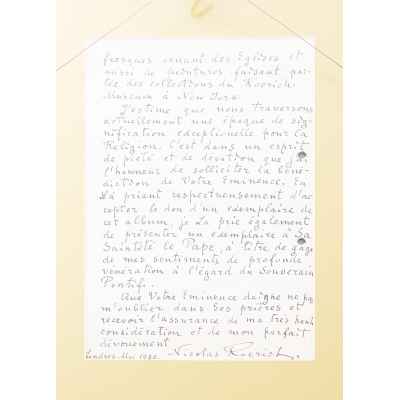 fresques venant des Eglises et
aussi de peintures faisant par-
tie des collections du Roerich
Museum à New York.
J'estime que nous traversons
actuellement une époque de sig-
nification exceptionelle pour la
Religion. C'est dans un esprit
de piété et de dévotion que j'ai
l'honneur de solliciter la béné-
diction de Votre Eminence. En
La priant respectueusement d'ac-
cepter le don d'un exemplaire de
cet album, je La prie également
de présenter un exemplaire à Sa
Sainteté le Pape, à titre de gage
de mes sentiments de profonde
vénération à l'égard du Souverain
Pontife.
Que Votre Eminence daigne ne pas
m'oublier dans Ses prières et
recevoir l'assurance de ma très haute
considération et de mon parfait
dévouement
Londres. Mai Nicolas Roerich.